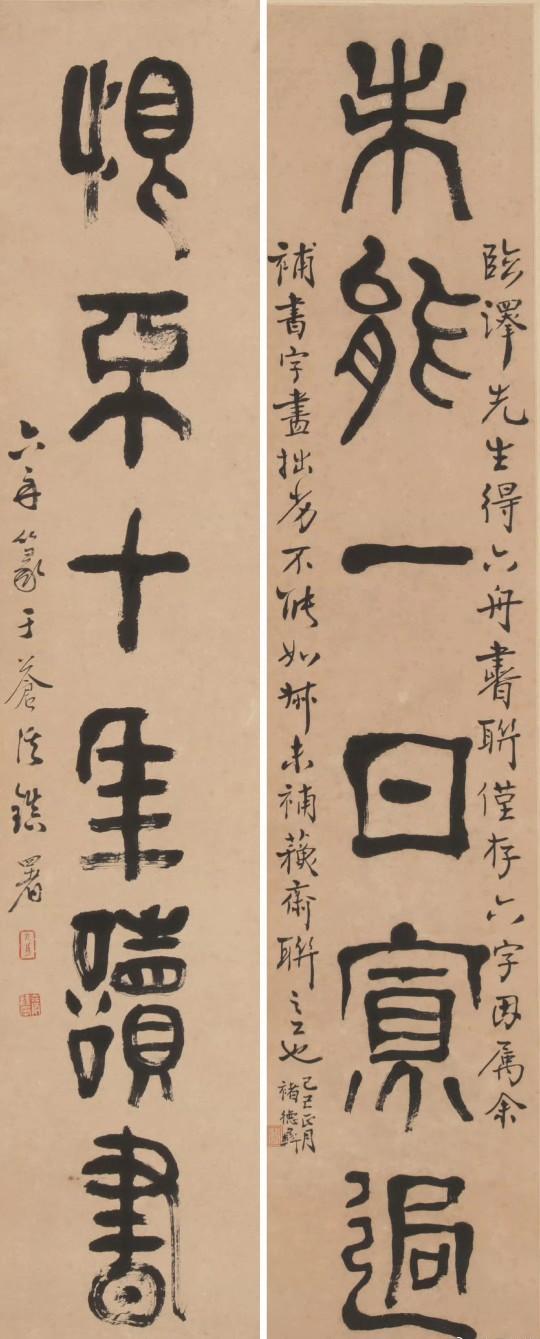 未能一日寡過
臨澤先生得六舟書聯僅存六字因屬余
補書字畫拙劣不能如叔未補蘓齋聯之工也
己巳正月
褚德彝
恨不十年讀書
六舟篆于蒼溪鎮署